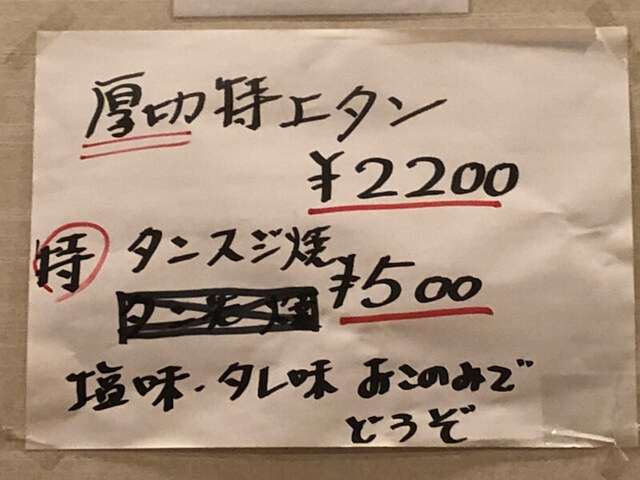 厚切特上タン
¥2200
特 タンスジ焼 ¥500
塩味・タレ味 おこのみで
どうぞ